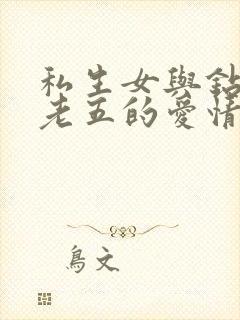 私生女與鉆
老五的愛情
鳥文